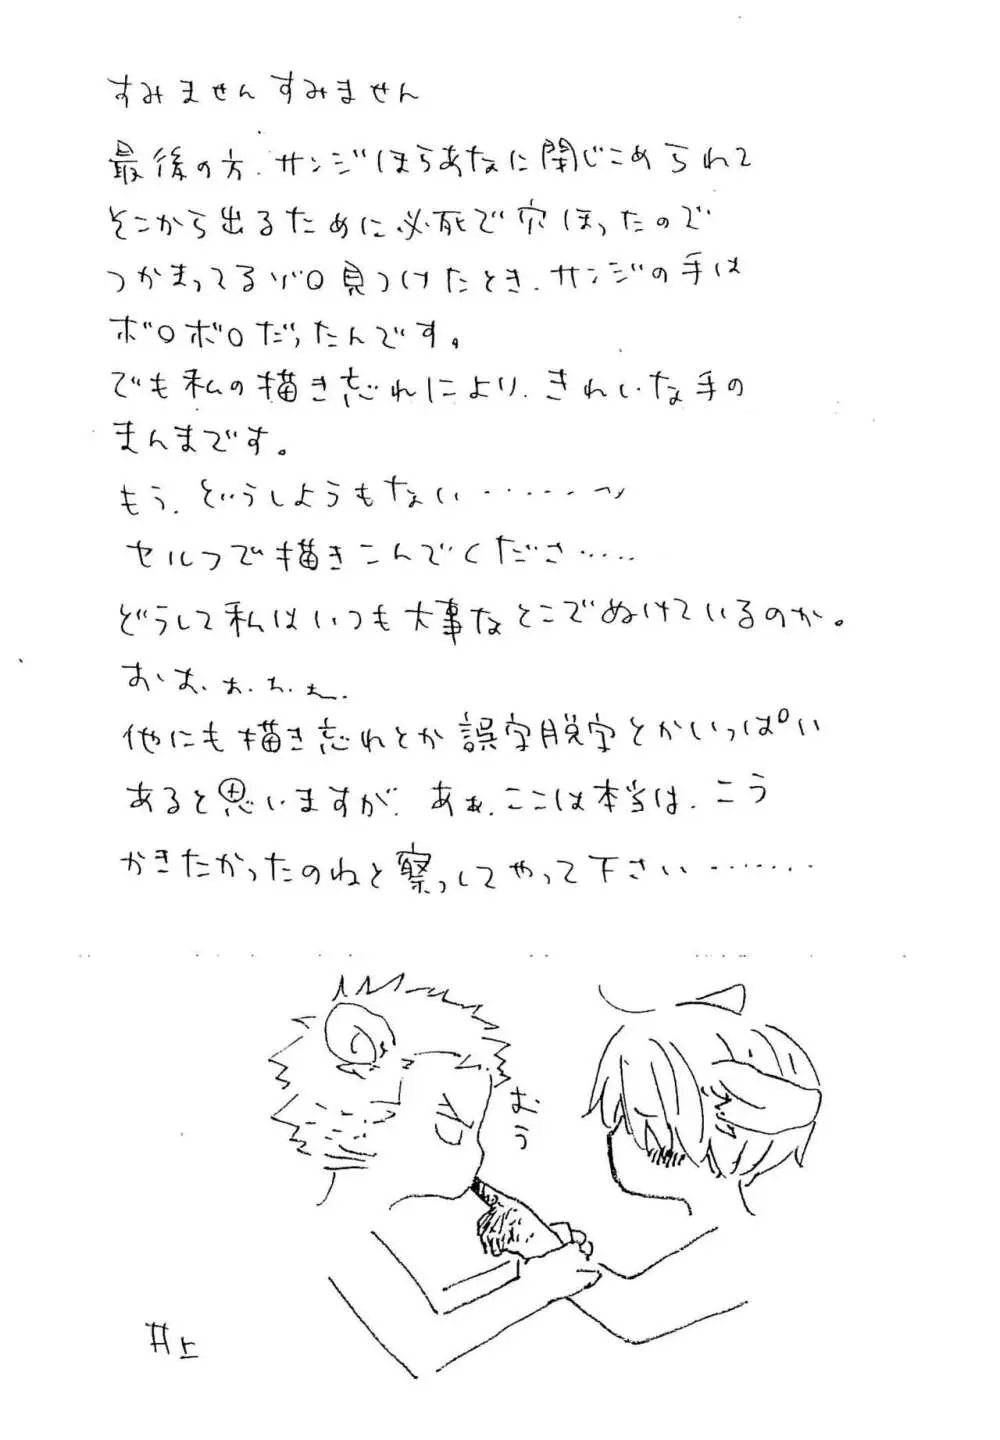 すみませんすみません
最後の方、サンジほらあなに閉じこめられて
そこから出るために必死で穴ほったので
つかまってるゾロ見つけたとき、サンジの手は
ボロボロだったんです。
でも私の描き忘れにより、きれいな手の
まんまです。
もう、どうしようもない……っ
セルフで描きこんでくださ……
どうして私はいつも大事なとこでぬけているのか。
お、お、ぉ、ぉ、ぉ、
他にも描き忘れとか誤字脱字とかいっぱい
あると思いますが、あぁ、ここは本当は、こう
かきたかったのねと察っしてやって下さい………
おう
井上